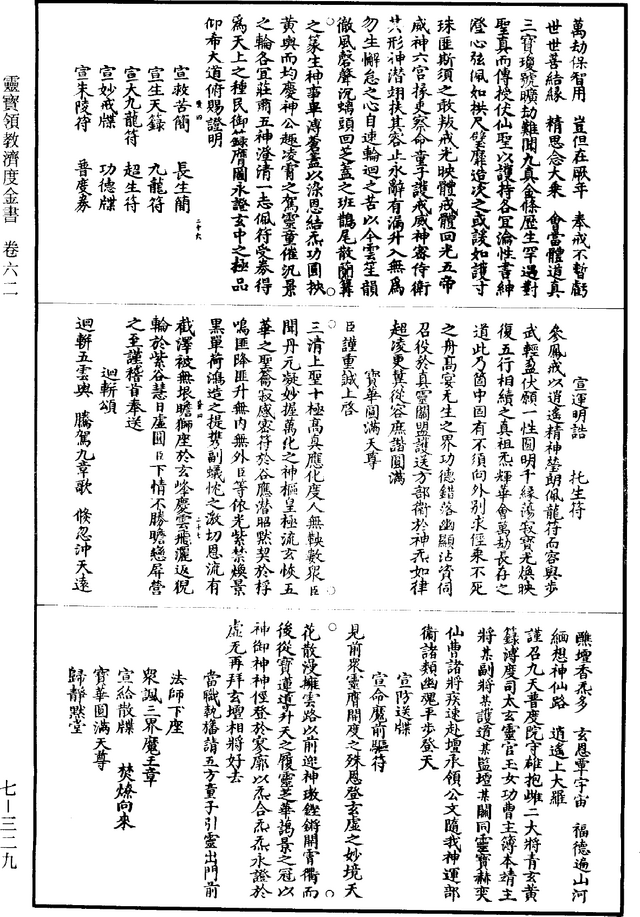 萬劫保智用　豈但在厥年　奉戒不暫虧
世世善結緣　精思念大乘　會當體道真
三寶瓊號曠劫難聞九真金條歷生罕遇對
聖真而傳授伏仙聖以護持各宜淪性書紳
澄心弦佩如拱尺璧靡造次之或諼如護寸
珠匪斯須之敢叛戒光映體戒體回光五帝
威神六宮掾吏察命童子護戒威神密侍衛
其形神潛翊扶其容止永辭有漏升入無為
勿生懈怠之心自速輪迴之苦以今雲笙韻
徹風磬聲沉螭頭回芝蓋之班鵲尾散蘭篝
之篆生神事畢溥蒼蓋以滌恩結炁功圓抉
黃輿而均慶神公趣凌霄之駕靈童催汎景
之輪各宜莊肅五神澄清一志佩符受券得
為天上之種民御籙膺圖永證玄中之極品
仰希大道俯賜證明
宣救苦簡　長生簡
宣生天籙　九龍符
宣大九龍符　超生符
宣妙戒牒　功德牒
宣朱陵符　普度券
宣運明誥　托生符
參鳳戒以逍遙精神瑩朗佩龍符而容與步
武輕盈伏願一性圓明千緣蕩寂寶光煥映
復五行相續之真祖炁輝華會萬劫長存之
道此乃箇中固有不須向外別求徑乘不死
之舟高宴无生之界功德錯落幽顯沾資伺
召役於真靈關盟護送方部衛於神炁如律
超凌更冀從容庶諧圓滿
寶華圓滿天尊
臣謹重誠上啓
三清上聖十極高真應化度人無軮數衆臣
聞丹元凝妙握萬化之神樞皇極流玄恢五
華之聖蘥寂感密符於谷應潛昭默契於桴
鳴匪降匪升無內無外臣等依光紫禁煥景
黑單荷鴻造之提携副蟻忱之激切恩流有
截澤被無垠瞻獅座於玄峰慶雲飛灑返猊
輪於紫谷慧日虛圓臣下情不勝瞻戀屏營
之至謹稽首奉送
迴軿頌
迴軿五雲輿　騰駕九章歌　倏忽沖天逵
醮壇香炁多　玄恩覃宇宙　福德遍山河
緬想神仙路　逍遙上大羅
謹召九天普度院守雄抱雌二大將青玄黃
籙溥度司太玄靈官玉女功曹主簿本靖主
將某副將某護道某監壇某關同靈寶赫奕
仙曹諸將疾速赴壇承領公文隨我神運部
衛諸類幽魂平步登天
宣防送牒
宣命魔前驅符
見前衆靈膺開度之殊恩登玄虛之妙境天
花散漫擁雲路以前迎神璈鏗鏘開霄衢而
後從寶蓮道升天之履靈芝華藹景之冠以
神御神神徑登於寥廓以炁合炁炁永證於
虛无再拜玄壇相將好去
當職執旛請五方童子引靈出門前
法師下座
衆諷三界魔王章
宣給散牒　焚燎向來
寶華圓滿天尊
歸靜默堂
靈寶領教濟度金書　卷六二
七—三二九